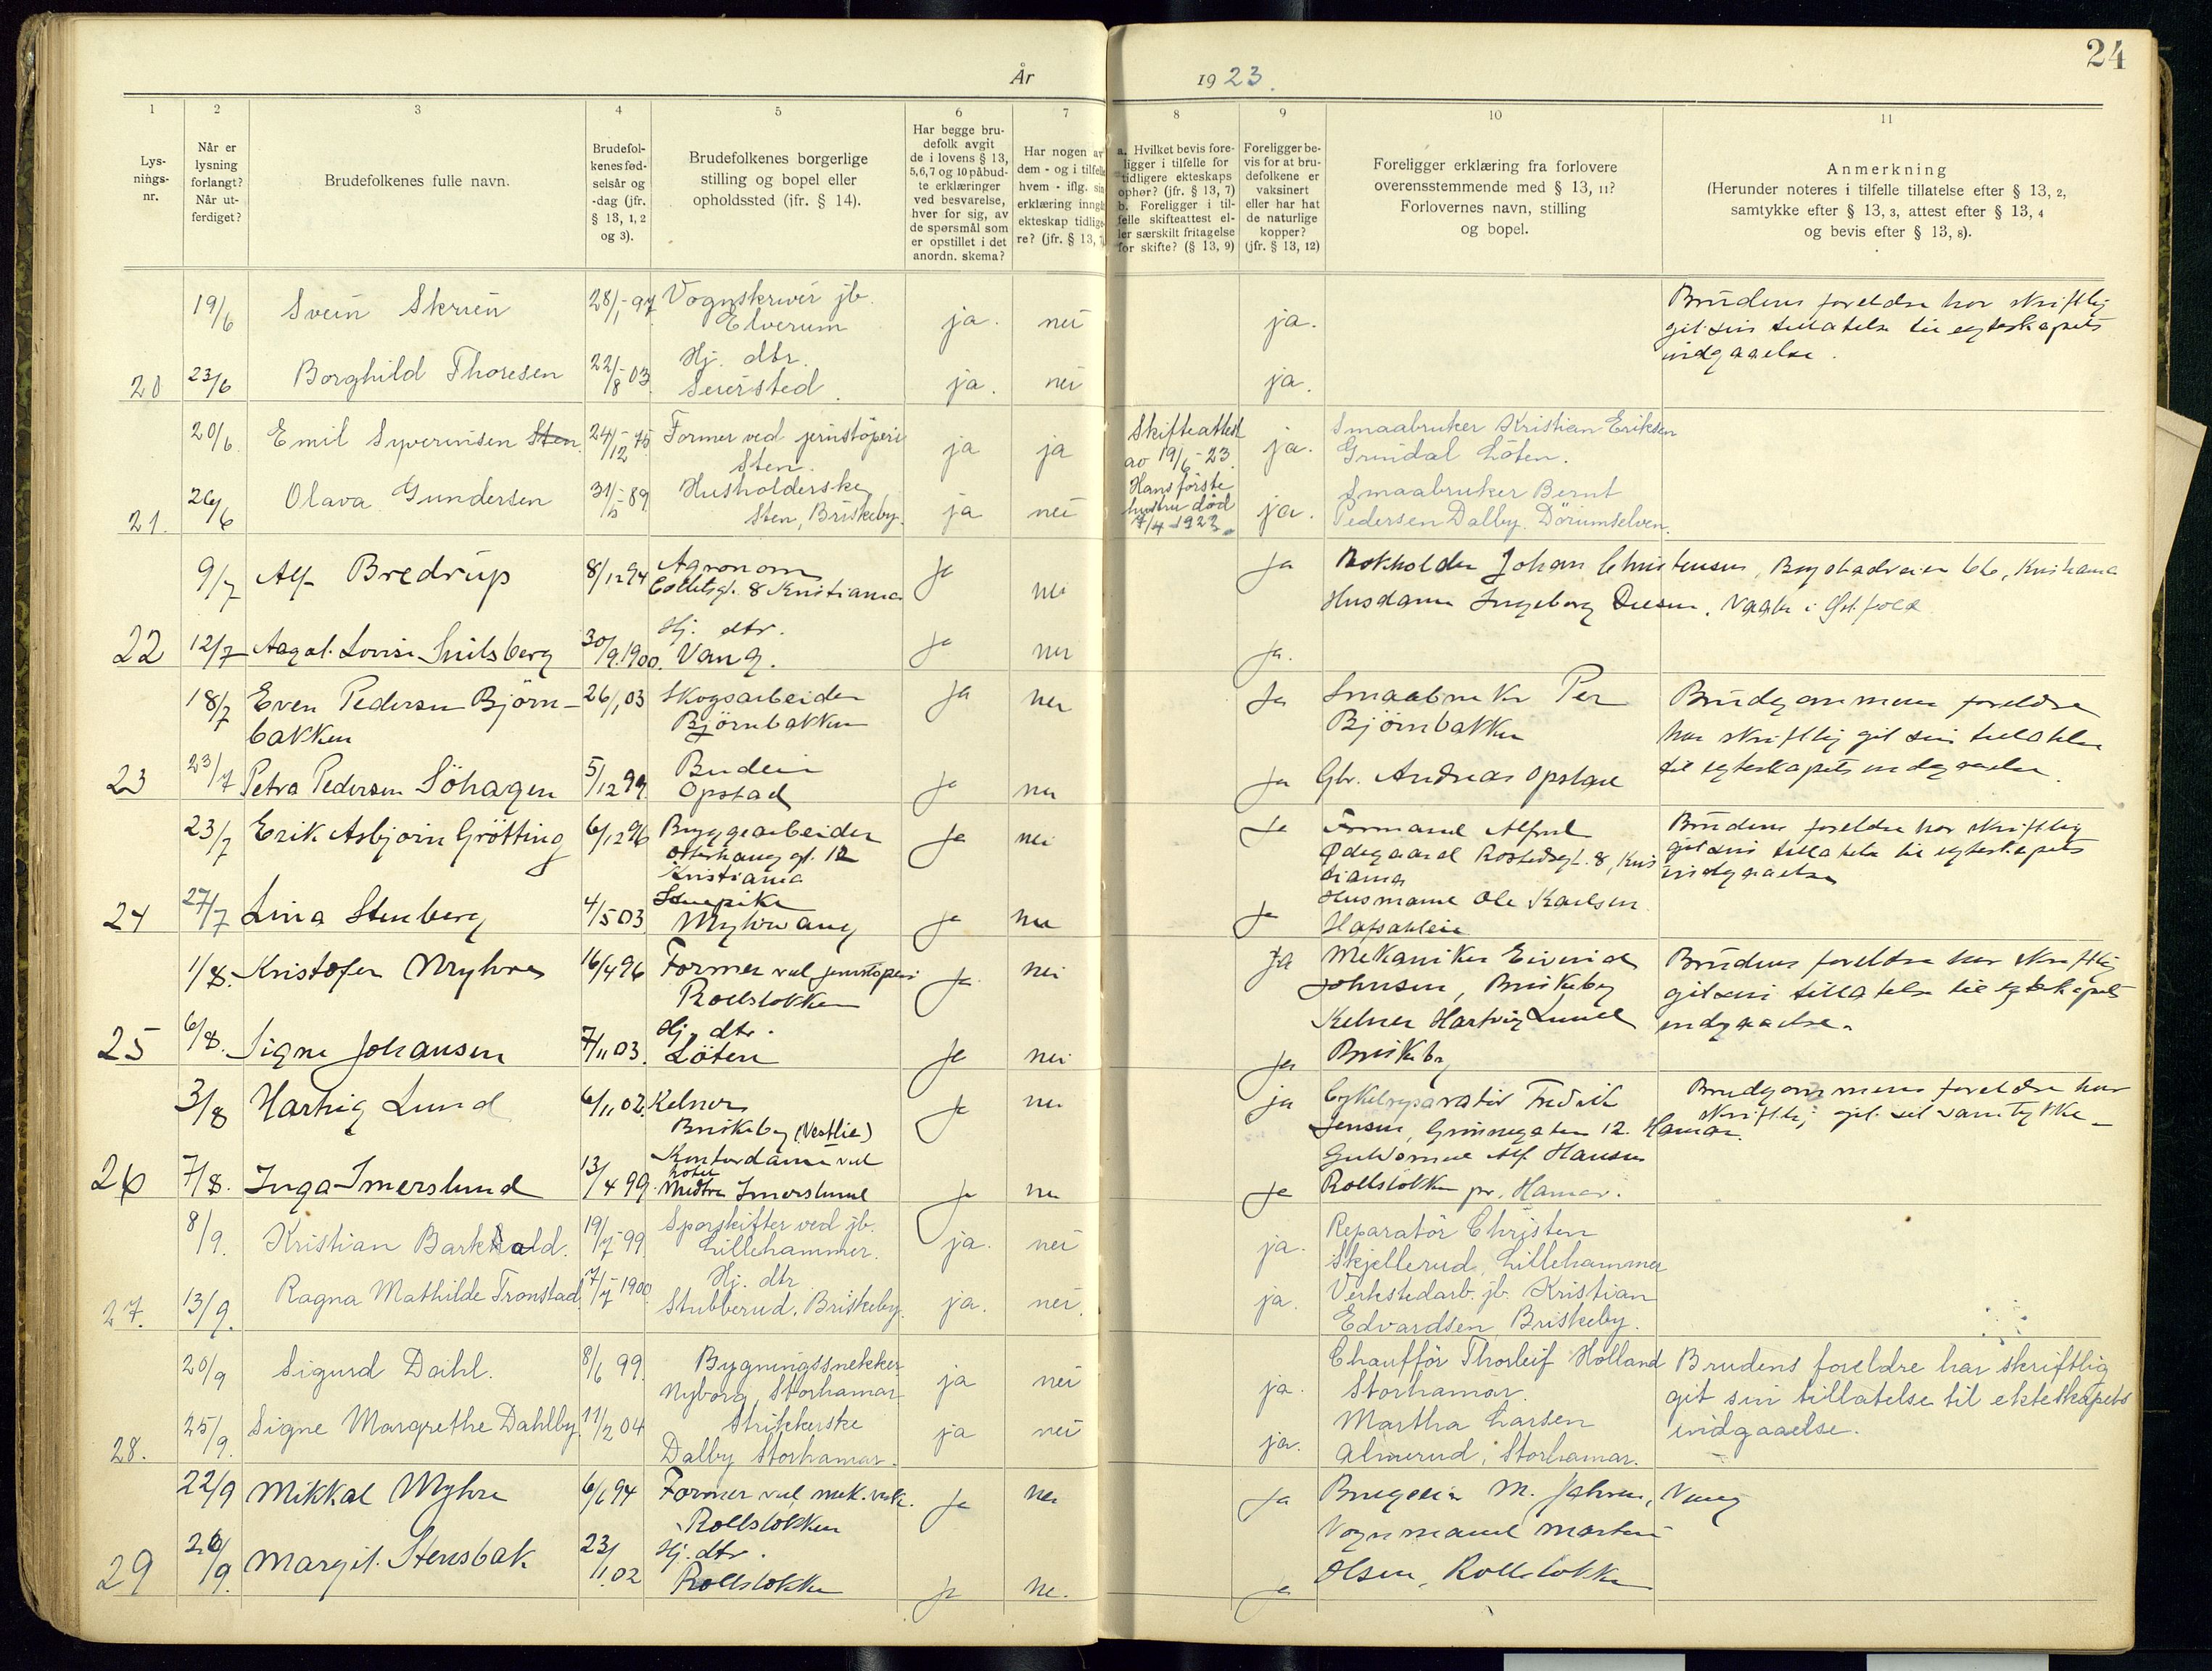 24
År 1923.
1 2 3 4 5 6 7 8 9 10 11
Lys-
nings-
nr.
Når er
lysning
forlangt?
Når ut-
ferdiget?
Brudefolkenes fulle navn.
Brudefol-
kenes fød-
selsår og
-dag (jfr.
§ 13, 1, 2
og 3).
Brudefolkenes borgerlige
stilling og bopel eller
opholdssted (jfr. § 14).
Har begge bru-
defolk avgit
de i lovens § 13,
5, 6, 7 og 10 påbud-
te erklæringer
ved besvarelse,
hver for sig, av
de spørsmål som
er opstillet i det
anordn. skema?
Har nogen av
dem - og i tilfelle
hvem - iflg. sin
erklæring inngå
ekteskap tidlige-
re? (jfr. § 13, 7
a. Hvilket bevis fore-
ligger i tilfelle for
tidligere ekteskaps
ophør? (jfr. § 13, 7)
b. Foreligger i til-
felle skifteattest el-
ler særskilt fritagelse
for skifte? (§ 13, 9)
Foreligger be-
vis for at bru-
defolkene er
vaksinert
eller har hat
de naturlige
kopper?
(jfr. § 13, 12)
Foreligger erklæring fra forlovere
overensstemmende med § 13, 11?
Forlovernes navn, stilling
og bopel.
Anmerkning
(Herunder noteres i tilfelle tillatelse efter § 13, 2,
samtykke efter § 13, 3, attest efter § 13, 4
og bevis efter § 13, 8).
19/6 Svein Skrien 28/1-97 Vognskriver jb.
Elverum ja. nei ja.
Brudens foreldre har skriftlig
git sin tillatelse til egteskapets
indgaaelse.
20 23/6 Borghild Thoresen 22/8-03 Hj. dtr.
Seiersted. ja. nei ja.
20/6 Emil Syverinsen Sten 24/12-75 Former ved jernstöperi
Sten. ja ja
Skifteattest
av 19/6-23.
Hans förste
hustru död
7/4-1922.
ja. Smaabruker Kristian Eriksen
Grindal Löten.
21. 26/6 Olava Gundersen 31/5-89 Husholderske
Sten, Briskeby. ja nei ja. Smaabruker Bernt
Pedersen Dalby. Dörumselven.
9/7 Alf Bredrup 8/12 94 Agronom
Colletsgt. 8 Kristiania ja nei ja Bokholder Johan Christensen, Bogstadveien 66, Kristiania
Husdame Ingeborg Diesen, Vaaler i Østfold
22 12/7 Aagot Lovise Snilsberg 30/9 1900. Hj. dtr.
Vang. ja nei ja.
18/7 Even Pedersen Björn-
bakken 26/1 03 Skogsarbeider
Björnbakken ja nei ja Smaabruker Per
Björnbakken
Brudgommens foreldre
har skriftlig git sin tillatelse
til egteskapets indgaaelse.
23 23/7 Petra Pedersen Söhagen 5/12 99. Budeie
Opstad ja nei ja Gbr. Andreas Opstad
23/7 Erik Asbjørn Grötting 6/12 96 Bryggearbeider
Osterhausgt. 12
Kristiania ja nei ja Formand Alfred
Ødegaard Rostedsgt. 8, Kris
tiania
Brudens foreldre har skriftlig
git sin tillatelse til egteskapets
indgaaelse
24 27/7 Lina Stenberg 4/5 03 Stuepike
Myhrvang ja nei ja Husmand Ole Karlsen
Hafsahleie
1/8. Kristofer Myhre 16/4 96 Former ved jernstöperi
Rollsløkken ja nei ja Mekaniker Eivind
Johnsen, Briskeby
Brudens foreldre har skriftlig
git sin tillatelse til egteskapets
indgaaelse.
25 6/8. Signe Johansen 7/11 03. Hj. dtr.
Löten ja nei ja Kelner Hartvig Lund
Briskeby
3/8 Hartvig Lund 6/11 02. Kelner
Briskeby (Vestlie) ja nei ja Cykelreparatör Fredrik
Jensen, Grønnegaten 12. Hamar.
Brudgommens foreldre har
skriftlig git sit samtykke
26 7/8. Inga Imerslund 13/4 99. Kontordame ved
hotel
Midtre Imerslund ja nei ja Guldsmed Alf Hansen
Rollsløkken pr. Hamar.
8/9. Kristian Barkhald. 19/7-99. Sporskifter ved jb.
Lillehammer. ja. nei ja. Reparatör Christen
Skjellerud, Lillehammer
27. 13/9. Ragna Mathilde Tronstad 7/7-1900 Hj. dtr.
Stubberud. Briskeby. ja. nei. ja. Verkstedarb. jb. Kristian
Edvardsen, Briskeby.
20/9 Sigurd Dahl. 8/6 99. Bygningssnekker
Nyborg, Storhamar ja nei ja. Chaufför Thorleif Holland
Storhamar.
Brudens foreldre har skriftlig
git sin tillatelse til ekteskapets
indgaaelse.
28. 25/9. Signe Margrethe Dahlby 11/2 04 Strikkerske
Dalby Storhamar. ja nei ja. Martha Larsen
Almerud, Storhamar.
22/9 Mikkal Myhre 6/6 94 Former ved mek. verk.
Rollsløkken ja nei ja M. Vang
29 26/9. Margit Stensbak 23/1 02 Hj. dtr.
Rollsløkken ja nei. ja Vognmand Martin
Olsen, Rollsløkken